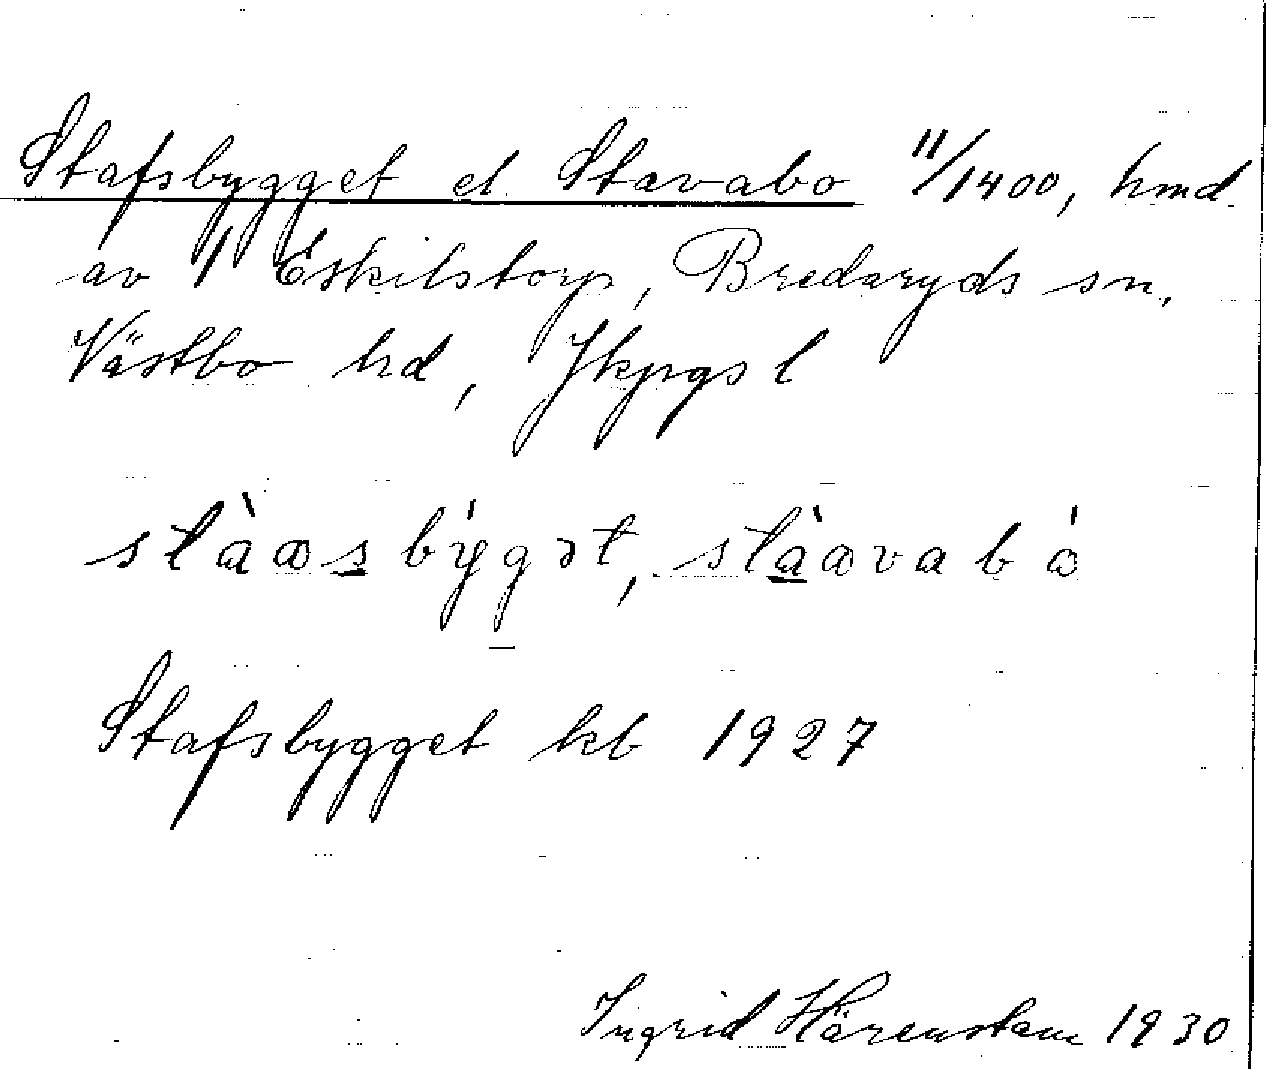 Stafsbygget el. Stavabo 11/1400, hmd.
av 1 Eskilstorp, Bredaryds sn,
Västbo hd, Jkpgs l
stàɷsbýgət, stàɷvabò
Stafsbygget kb 1927
Ingrid Härenstam 1930